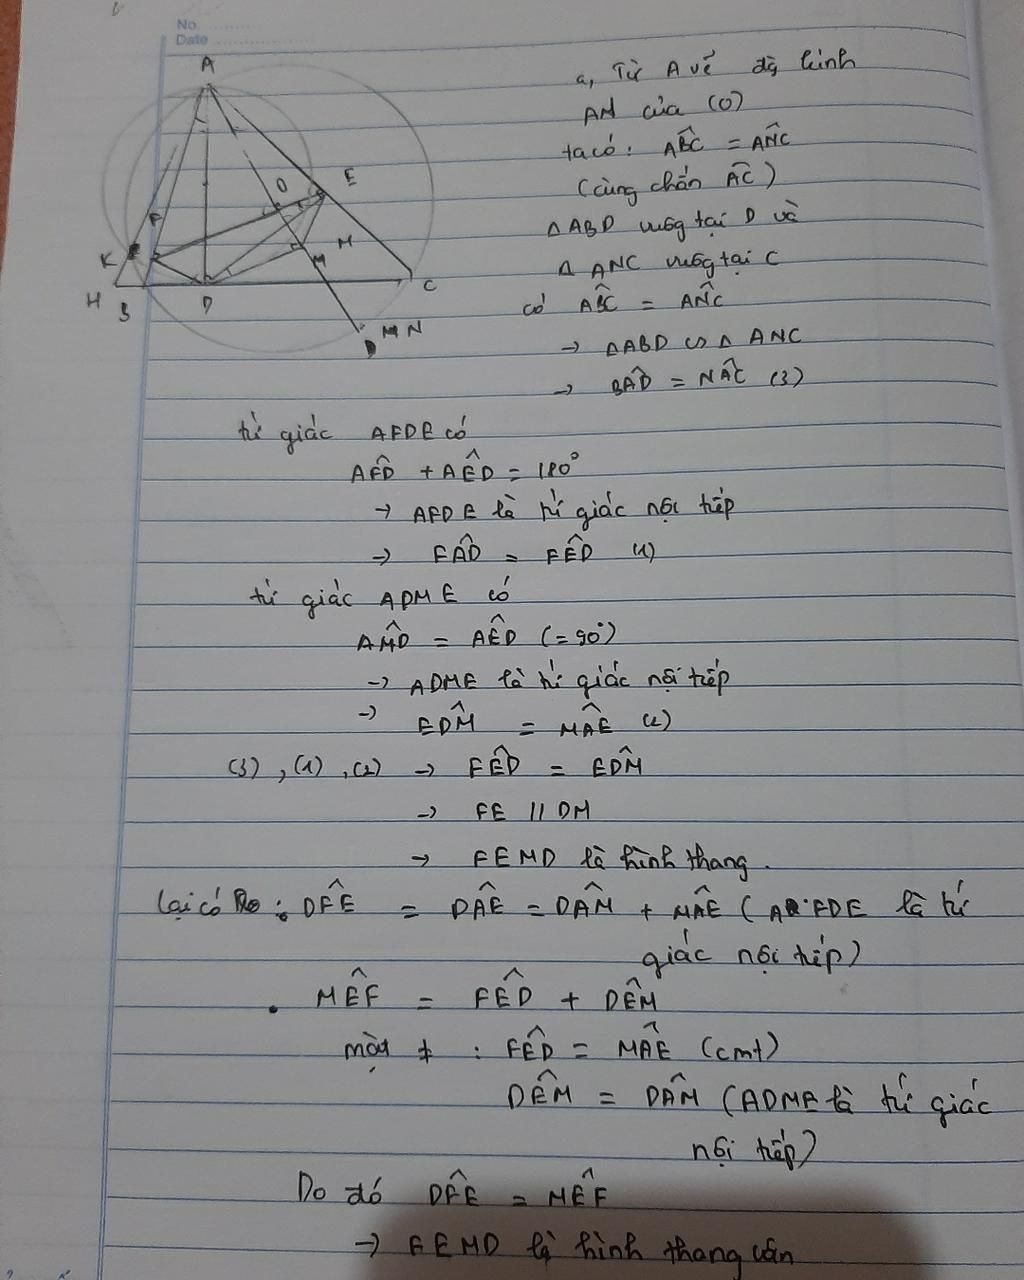 No.
Date
A
a, Từ A vẽ đg kính
AN của (O)
ta có : ABC = ANC
(cùng chắn AC)
△ABD vuông tại D và
△ ANC vuông tại C
có ABC = ANC
→ △ABD ∽ △ ANC
→ BAD = NAC (3)
O E
F
K M H
H B D C
M N
tứ giác AFDE có
AFD + AED = 180°
→ AFDE là tứ giác nội tiếp
→ FAD = FED (1)
tứ giác ADME có
AMD = AED (= 90°)
→ ADME là tứ giác nội tiếp
→ EDM = MAE (2)
(3) , (1) , (2) → FED = EDM
→ FE // DM
→ FEMD là hình thang .
lại có : DFE = DAE = DAM + MAE ( AFDE là tứ
giác nội tiếp)
. MEF = FED + DEM
mặt ≠ : FED = MAE (cmt)
DEM = DAM (ADME là tứ giác
nội tiếp)
Do đó DFE = MEF
→ FEMD là hình thang cân